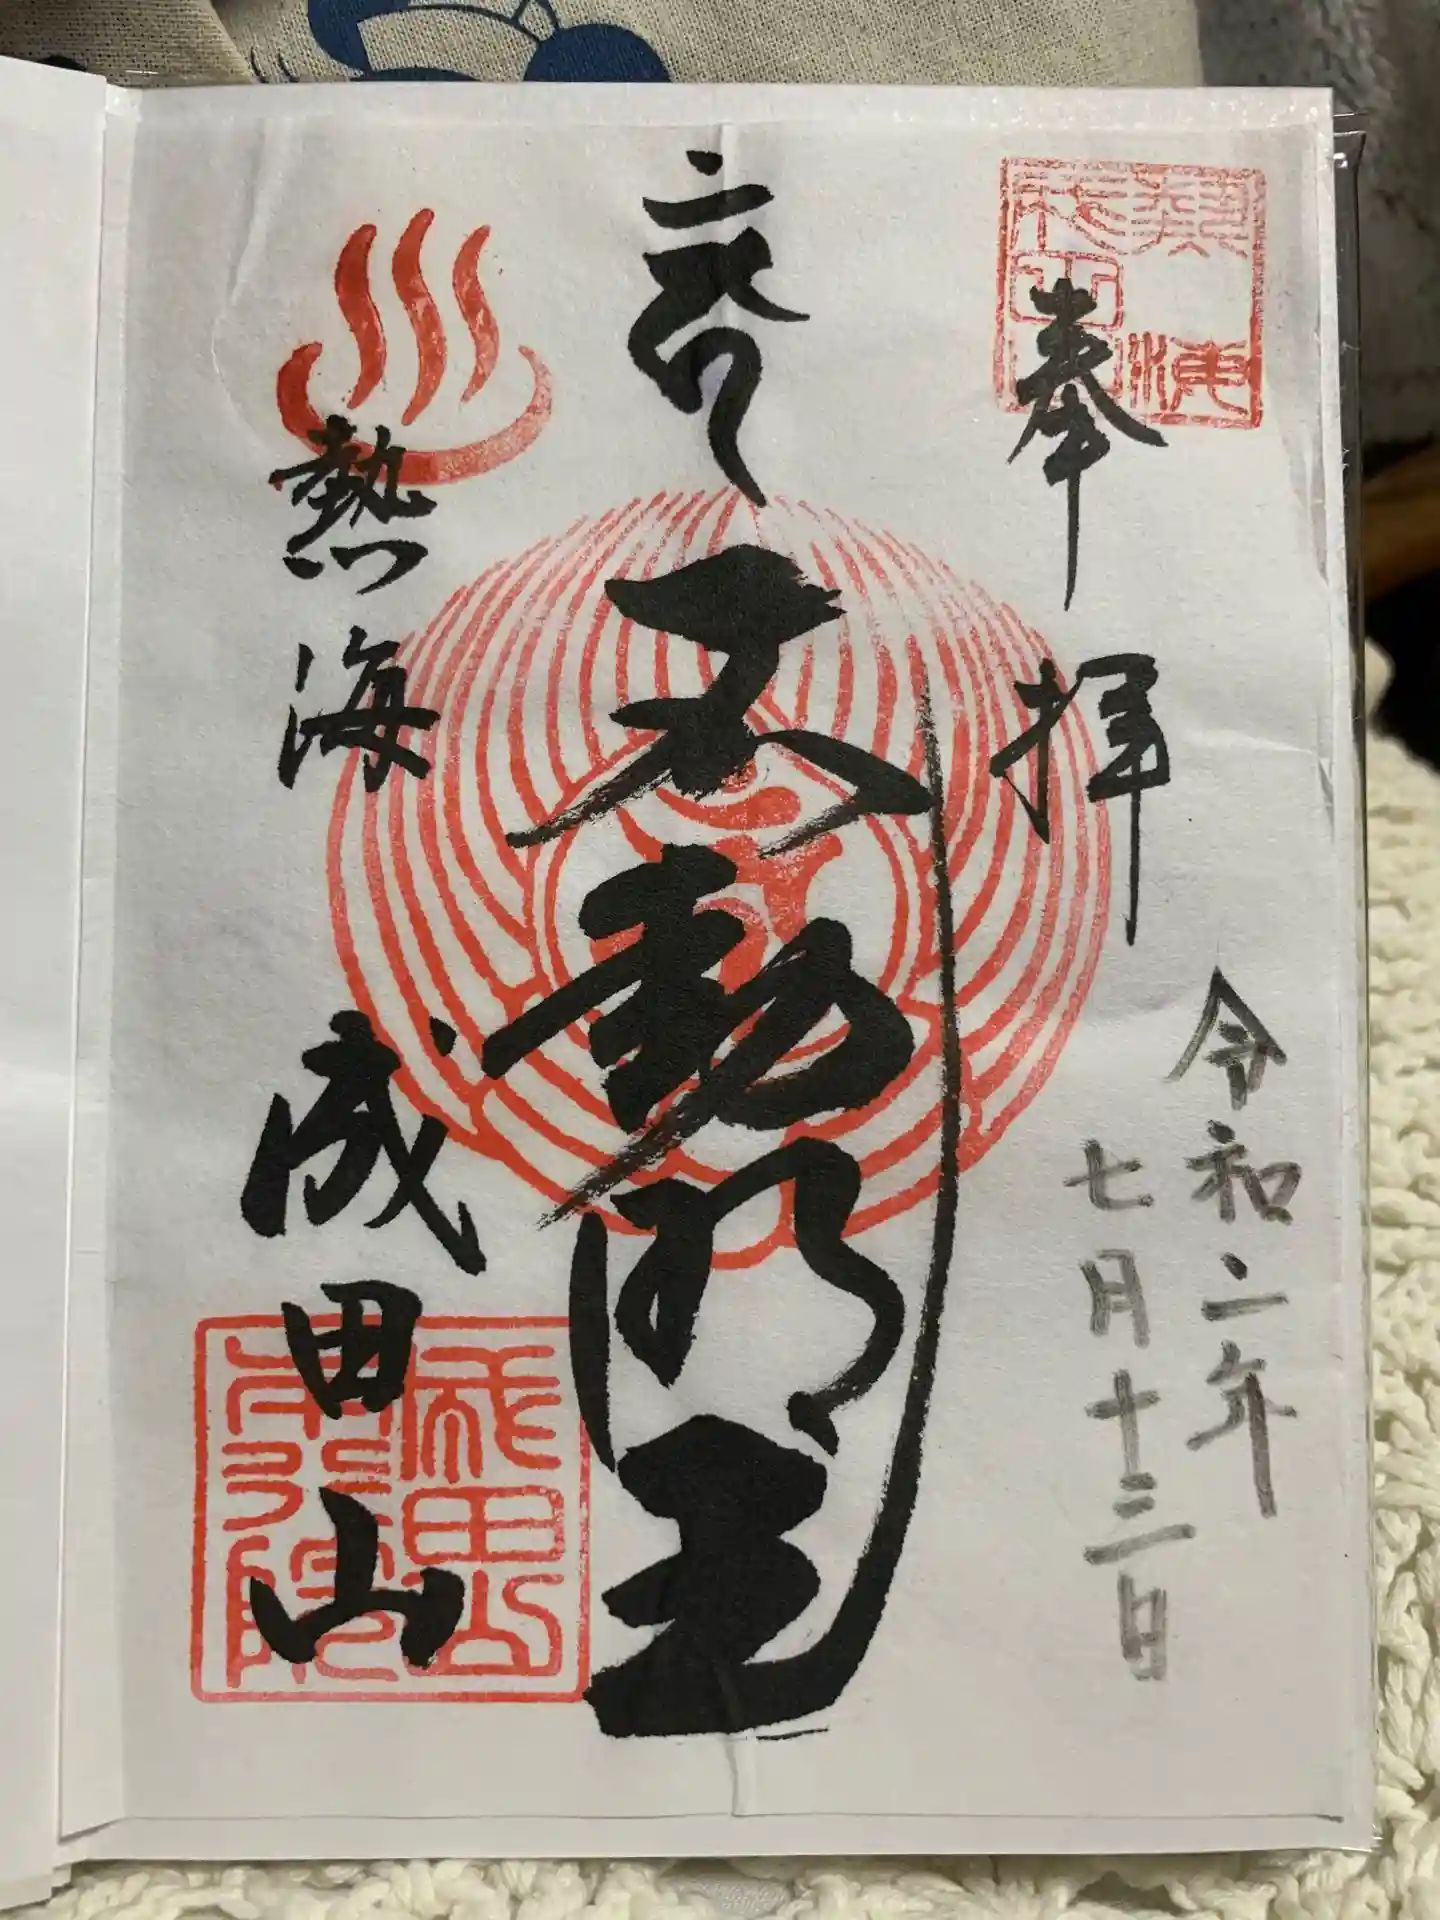 奉拝
令和二年
七月十三日
不動明王
熱海
成田山
成田山